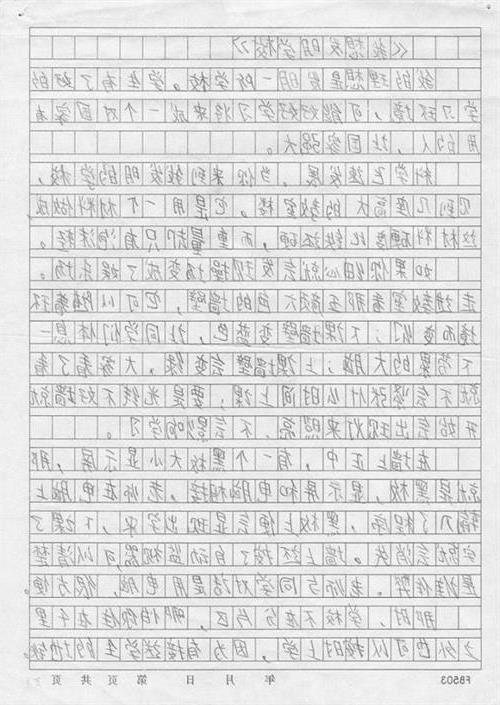 《我想发明学校》
我的理想是发明一所学校。学生有了好的
学习环境，可能好好学习将来成一个对国家有
用的人，让国家强大。
科学飞速发展，当你来到我发明的学校，
见到几座高大的教室楼。它是用一个材料做成
这材料硬度比铁还硬，而重量却只有泡沫轻。
如果你细心就会发现操场变成了娱乐场。
走进教室看那五颜六色的墙壁，它可以随着环
境而变化；下课墙壁变蓝色，让同学们休息一
下劳累的大脑；上课墙壁会变绿，大家看了看
就不会紧张什么时间上课；要是光线不好墙就
开始会出现灯来照亮，不会影响学习。
在墙上正中，有一个黑板大小显示屏，那
就是黑板，显示屏和电脑相接，老师在电脑上
输入了程序，黑板上便会显现出字来，下课了
字就会消失。墙上还接了自动监视器，可以清楚
是谁作弊。老师与同学对话是用电脑，很方便。
那时，学校不在分片区，哪怕你住在千里
之外也可以按时上学，因为有接送学生的地铁
FB503 年 月 日 第 页 共 页